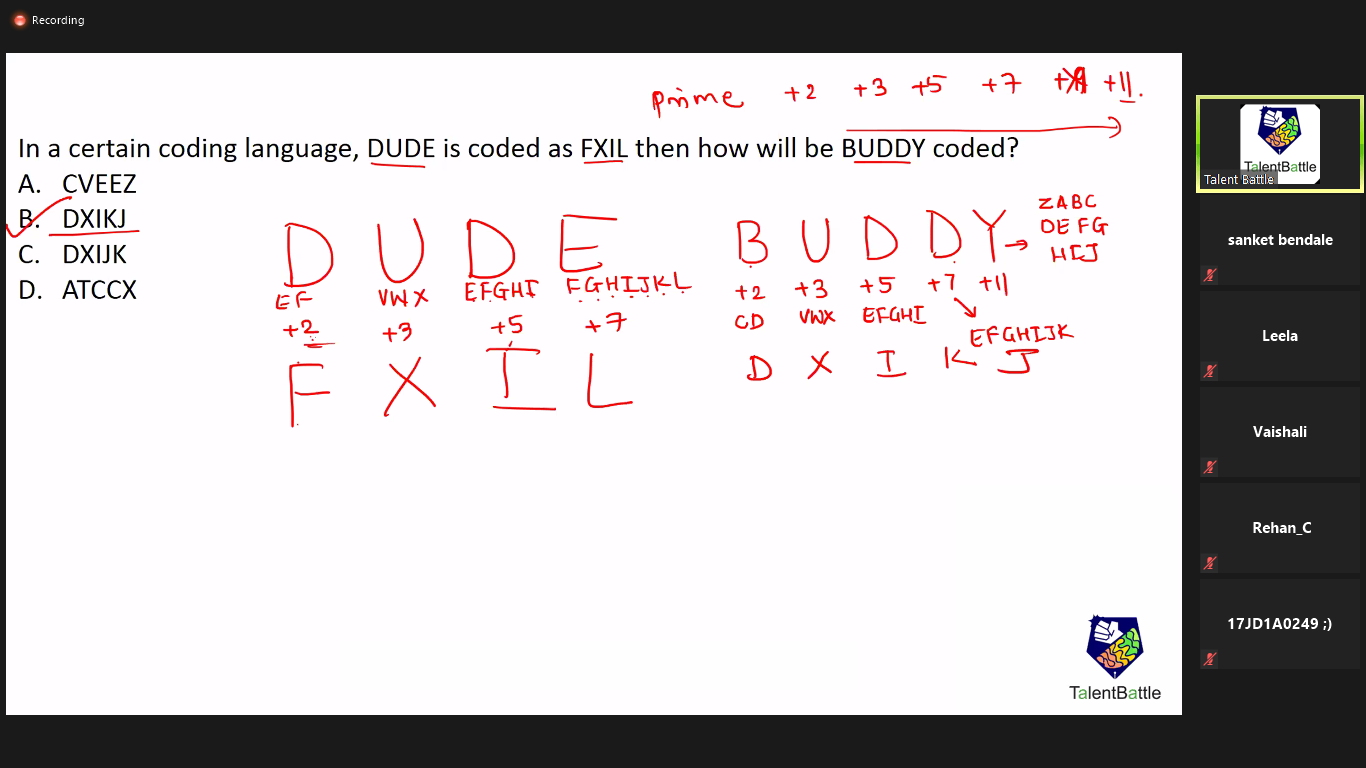 Recording
prime +2 +3 +5 +7 +11.
In a certain coding language, DUDE is coded as FXIL then how will be BUDDY coded?
A. CVEEZ
B. DXIKJ
C. DXIJK
D. ATCCX
D U D E
EF VWX EFGHI FGHIJKL
+2 +3 +5 +7
F X I L
B U D D Y
ZABC
DEFG
HIJ
+2 +3 +5 +7 +11
CD VWX EFGHI
EFGHIJK
D X I K J
TalentBattle
TalentBattle
Talent Battle
sanket bendale
Leela
Vaishali
Rehan_C
17JD1A0249 ;)